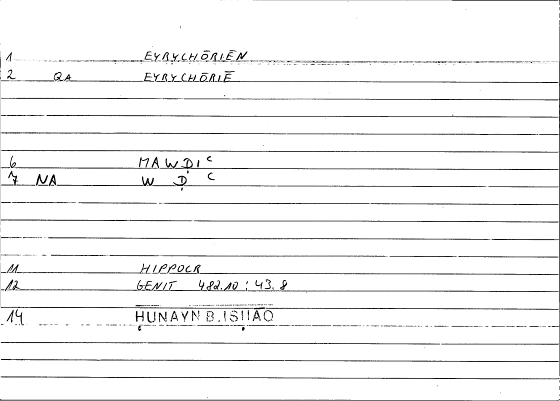 1 EYRYCHŌRIĒN
2 QA EYRYCHŌRIĒ
6 MAWḌIᶜ
7 NA W Ḍ ᶜ
11 HIPPOCR
12 GENIT 482.10 : 43.8
14 ḤUNAYN B.ISḤĀQ